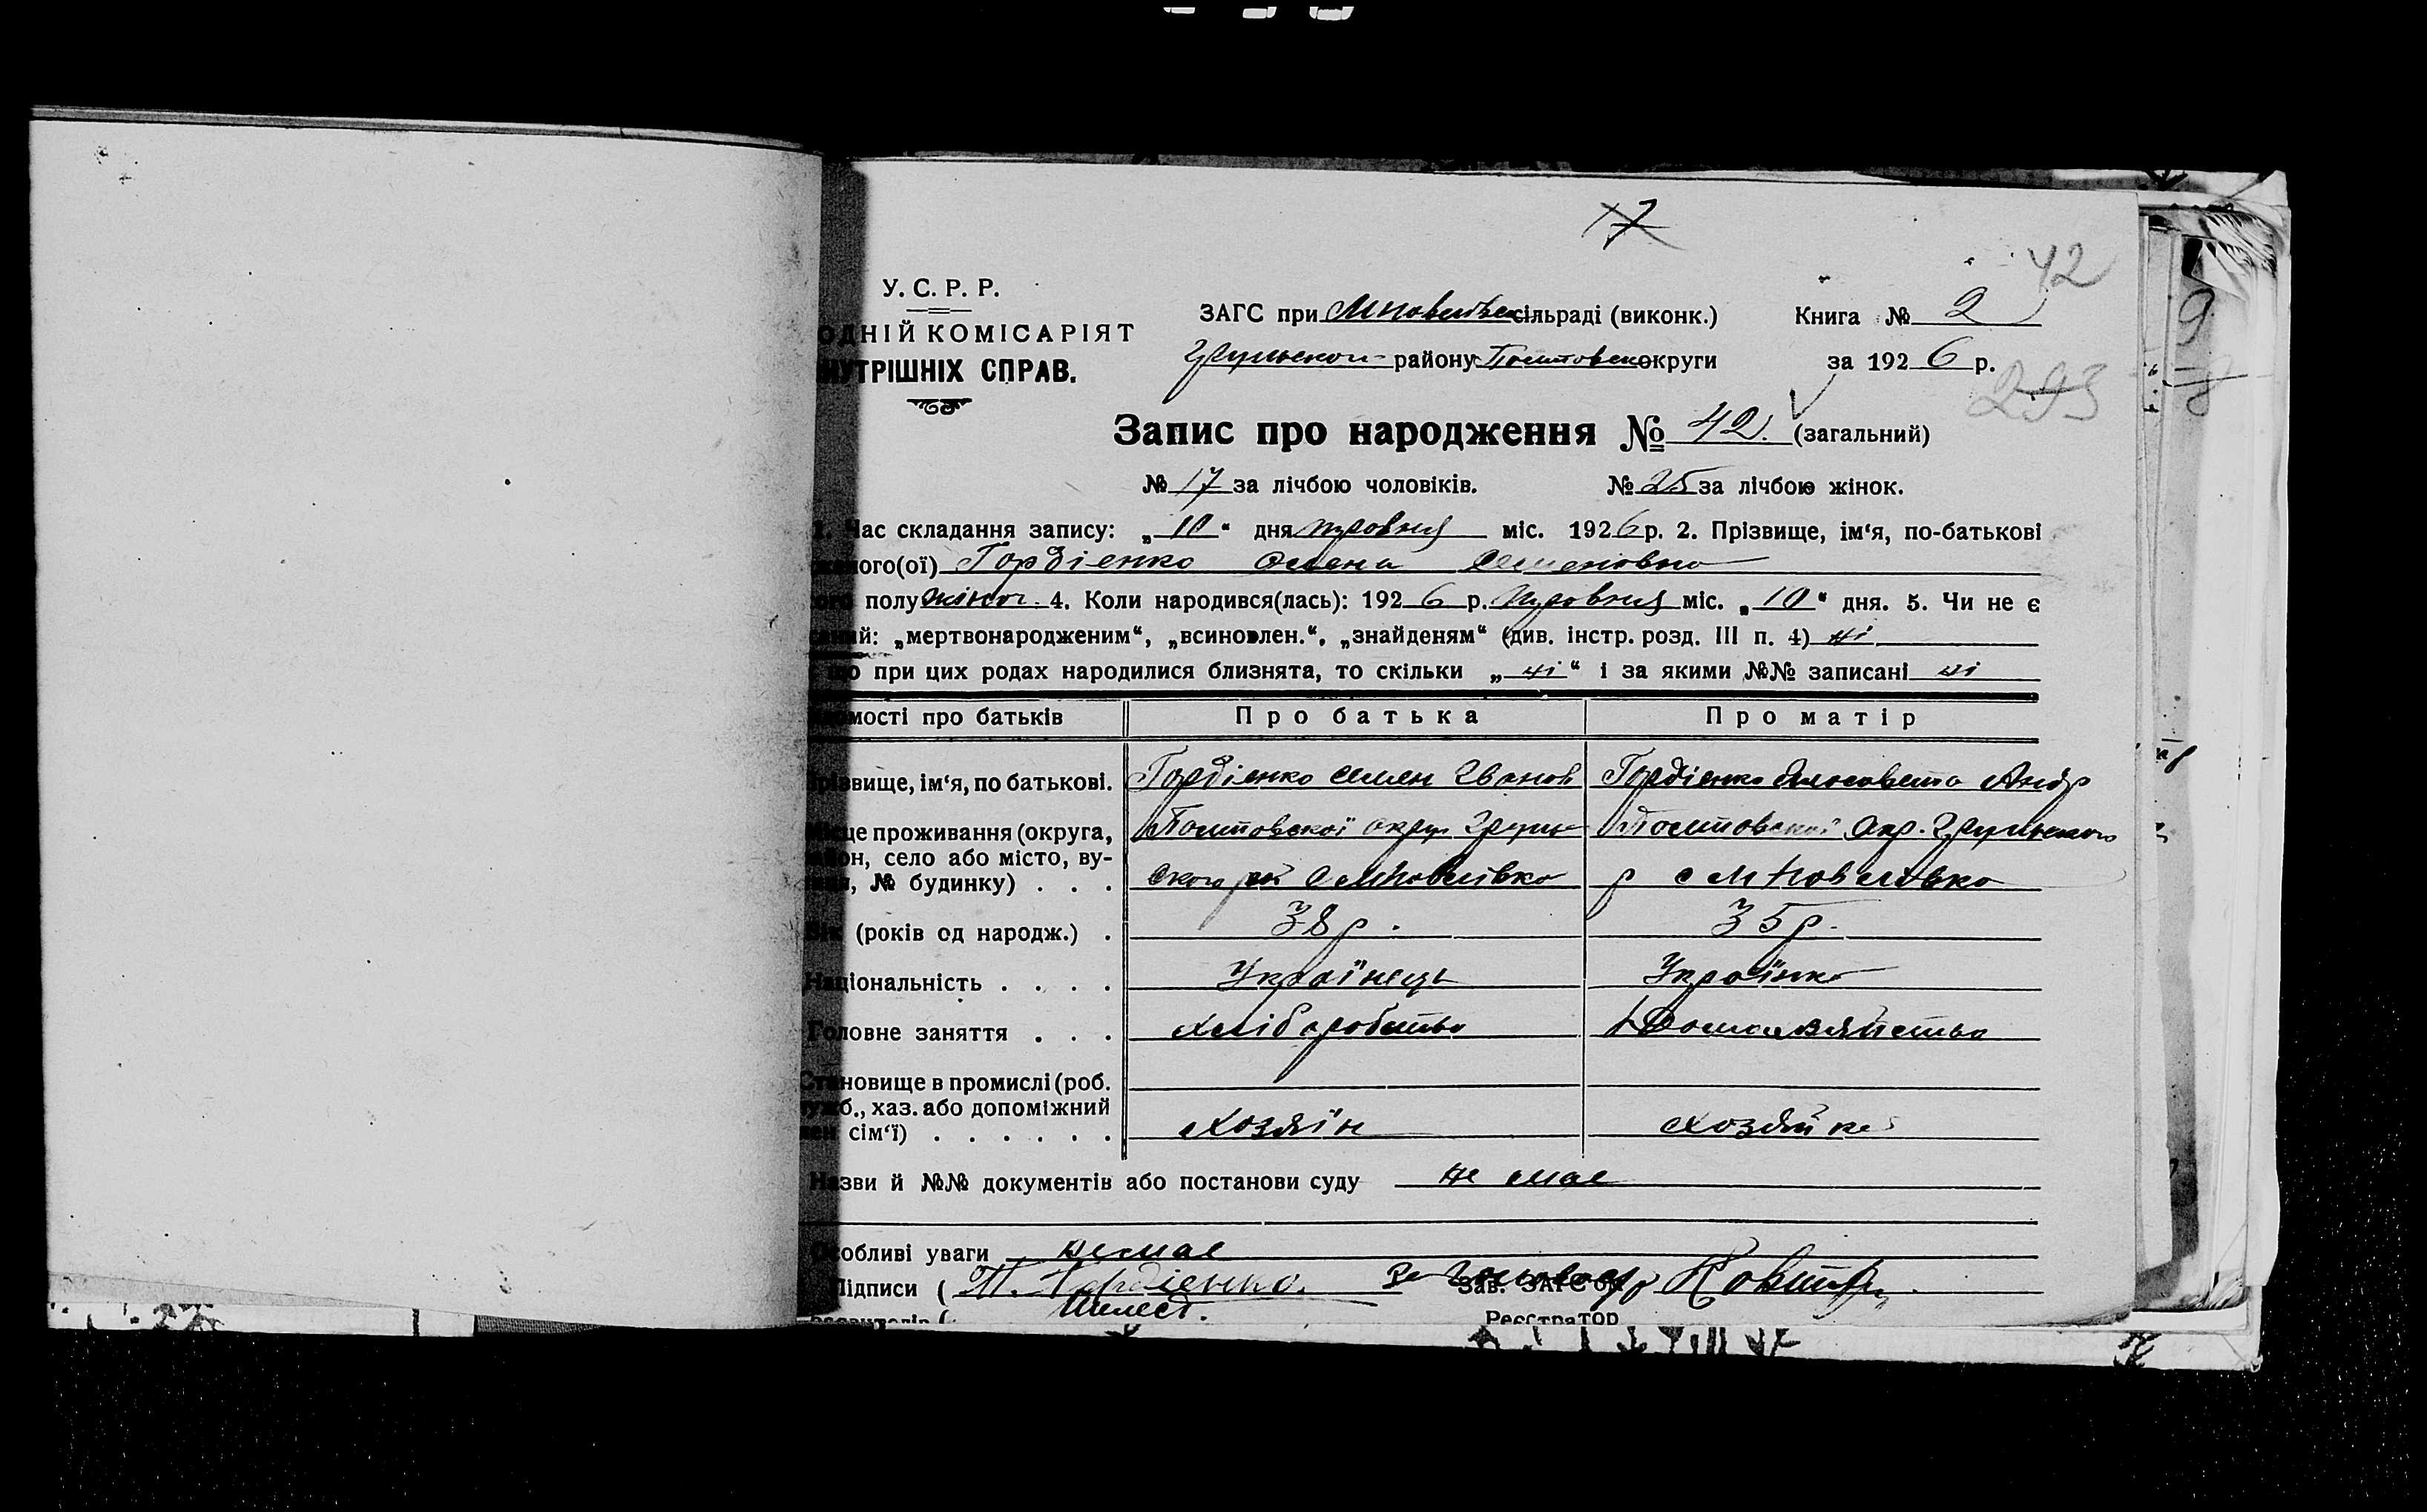 17
42
У. С. Р. Р.
ОДНІЙ КОМІСАРІЯТ
НУТРІШНІХ СПРАВ.
ЗАГС при сільраді (виконк.)
Грунської району Полтовськ округи
Книга № 2
за 1926 р.
293
Запис про народження № 42. (загальний)
№ 17 за лічбою чоловіків. № 25 за лічбою жінок.
1. Час складання запису: „10“ дня травня міс. 1926 р. 2. Прізвище, ім‘я, по-батькові
ного(ої) Гордієнко Олена Семеновна
ого полу жіноч. 4. Коли народився(лась): 1926 р. травня міс. „10“ дня. 5. Чи не є
саний: „мертвонародженим“, „всиновлен.“, „знайденям“ (див. інстр. розд. III п. 4) ні
що при цих родах народилися близнята, то скільки „ні“ і за якими №№ записані ні
омості про батьків Про батька Про матір
різвище, ім‘я, по батькові. Гордіенко Семен Іванов Гордіенко Андр
ісце проживання (округа, Полтовської округ Полтовської окр.
йон, село або місто, ву-
, № будинку) . . . ського с с
Вік (років од народж.) . 38 р. 35 р.
Національність . . . . Українець Українка
Головне заняття . . . хліборобство
Становище в промислі (роб.
ужб., хаз. або допоміжний
лен сім‘ї) . . . . . . хозяїн хозяйка
Назви й №№ документів або постанови суду не має
Особливі уваги немає
Підписи ( Гордіенко. Зав. ЗАГС‘ом
Шелест.
Реєстратор